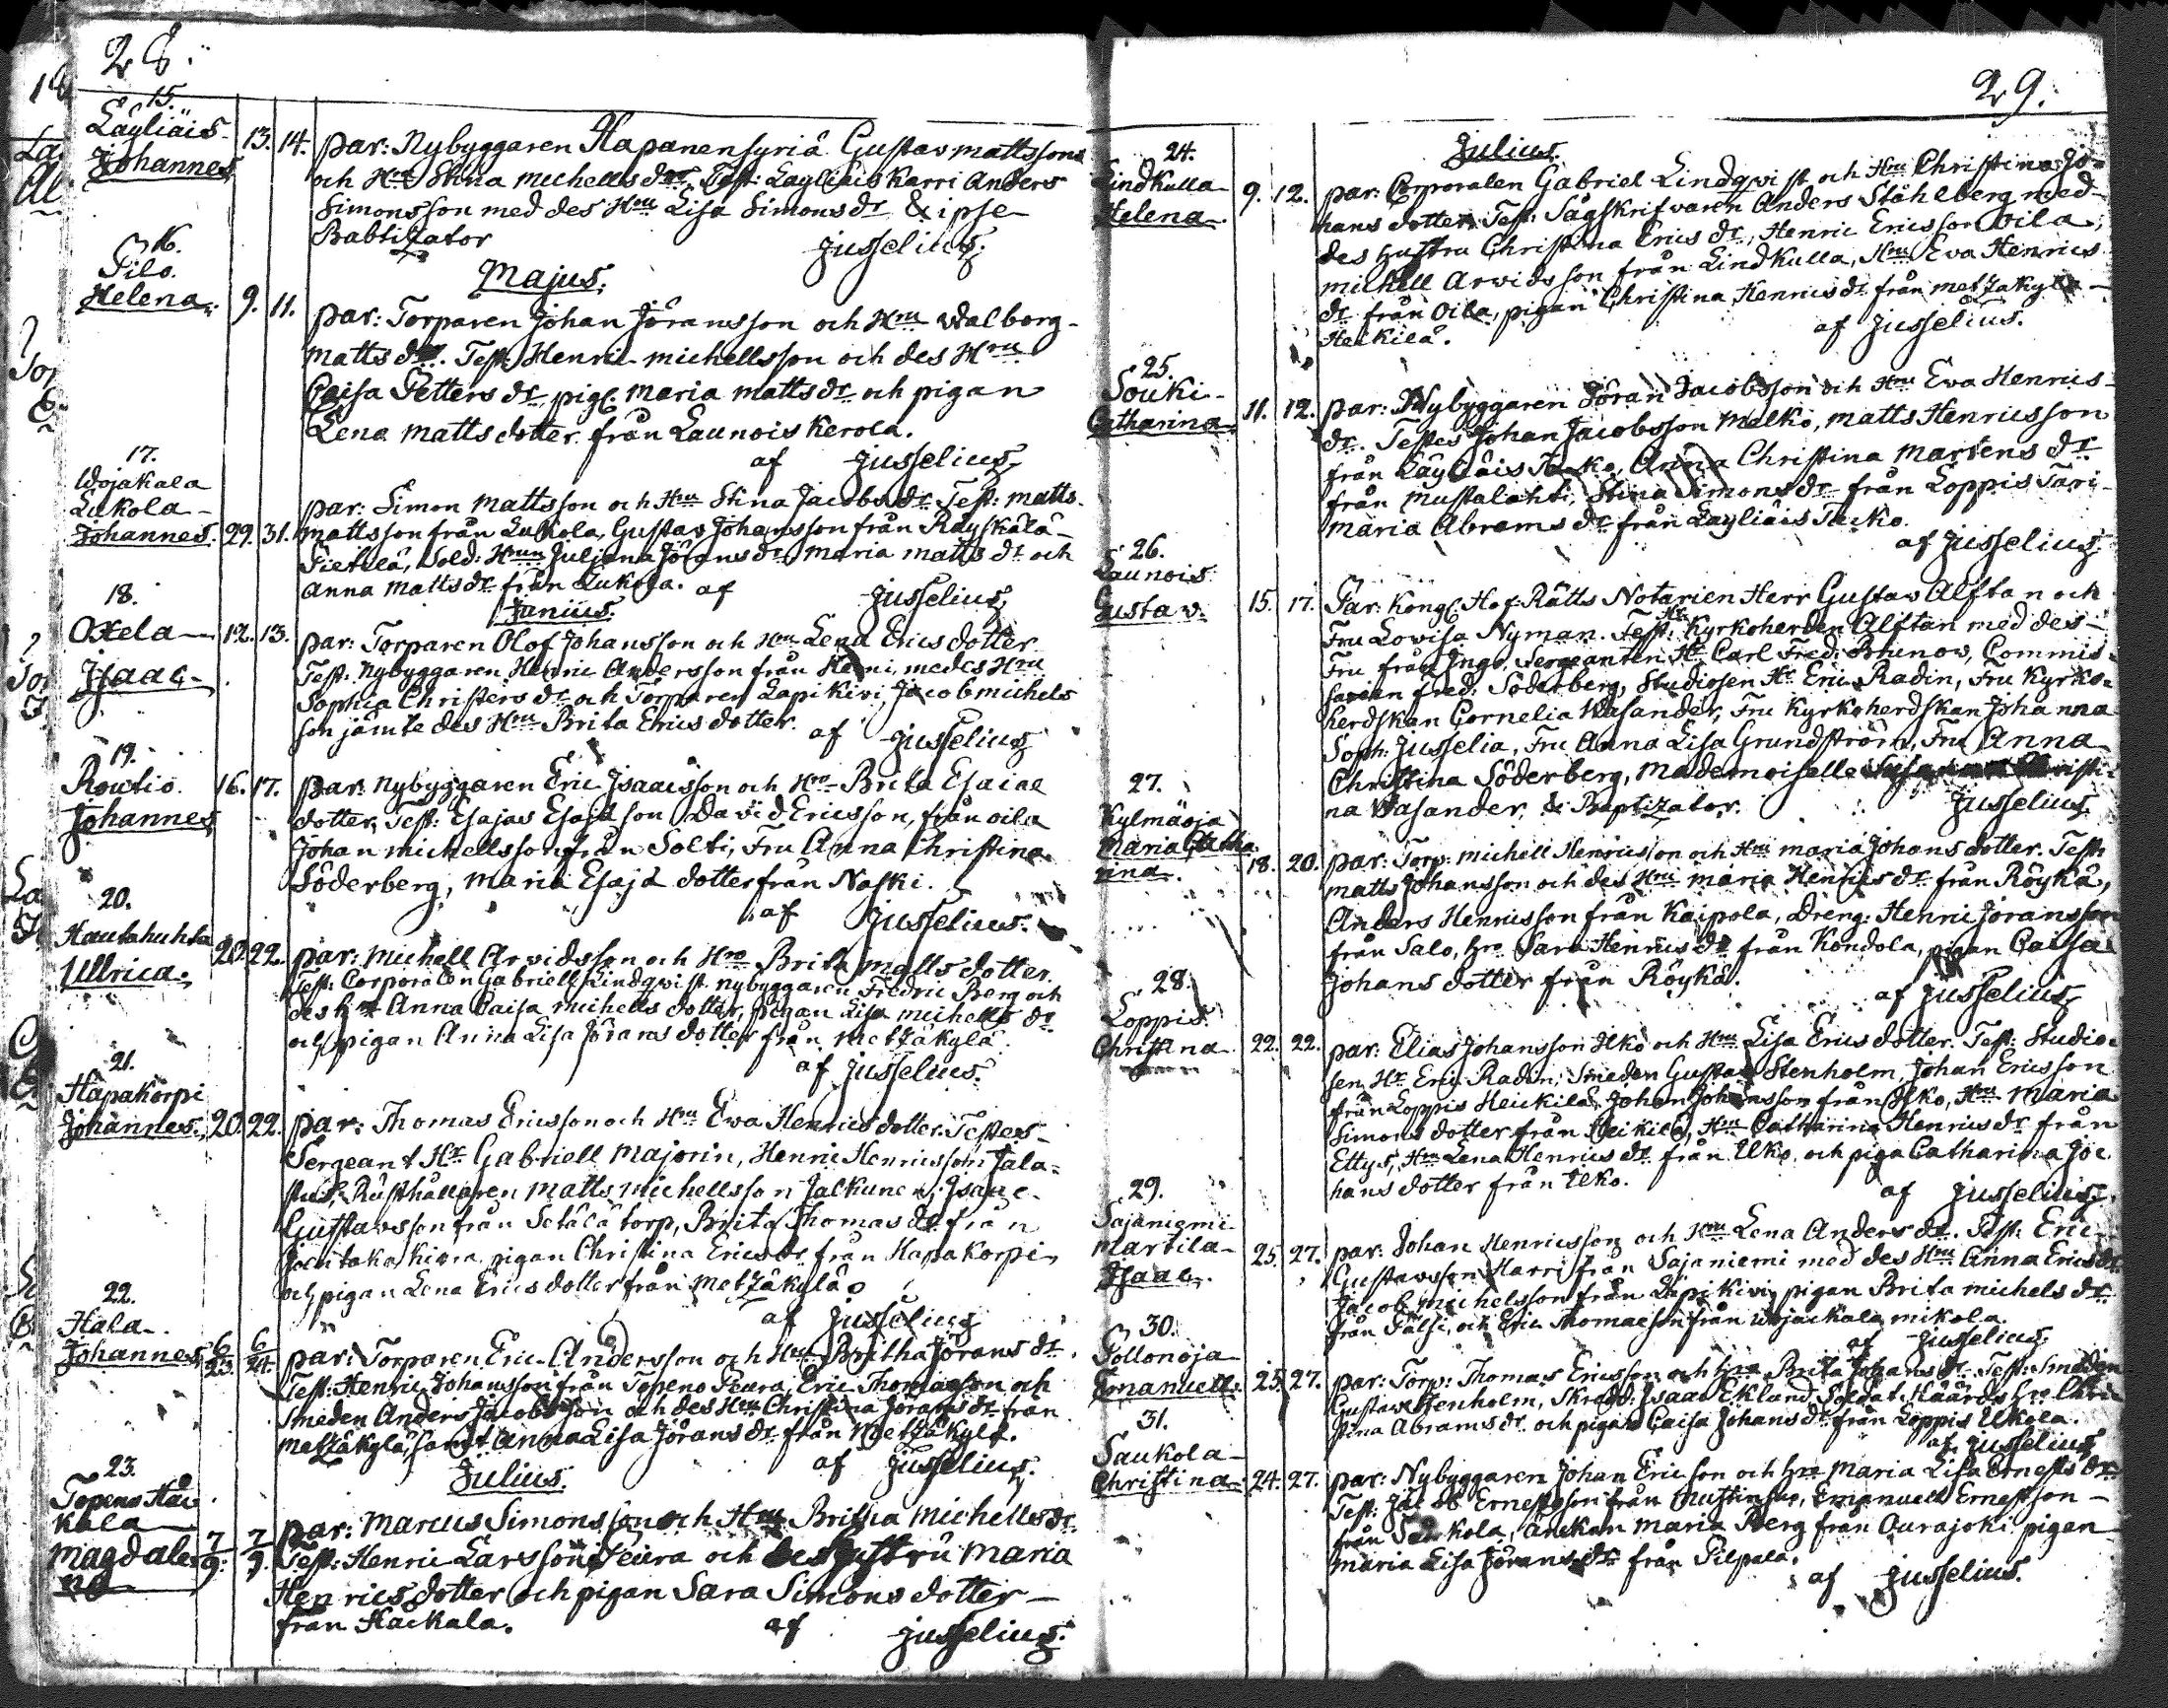 28.
15.
Läyliäis
Johannes
13. 14.
par: Nybyggaren Hapanensyriä Gustav mattssons
och Hru Stina michells dr, Test: Layliäis Karri Anders
Simonsson med des Hru Lisa Simons dr & ipse
Babtizator
Jusselius.
Majus.
16.
Pilo.
Helena.
9. 11.
par: Torparen Johan Jöransson och Hru Walborg
matts dr. Test: Henric michellsson och des Hru
Caisa Petters dr, pig: maria matts dr och pigan
Lena matts dotter från Launois Kerola.
af Jusselius
17.
Wojakala
Lukola
Johannes.
29. 31.
par: Simon mattsson och Hru Stina Jacobs dr Test: matts
mattsson från Lukola, Gustav Johansson från Räyskälä
Pietilä, Sold: Hrun Juliana Jörans dr, maria matts dr och
anna matts dr från Lukola. af Jusselius
Junius.
18.
Oxela
Isaac
12. 13.
par: Torparen Olof Johansson och Hru Lena Erics dotter
Test: nybyggaren Henric Andersson från , medes Hru
Sophia Christers dr och Torparen Lapikivi, Jacob michels
son jämte des Hru Brita Erics dotter. af Jusselius
19.
Routio.
Johannes
16. 17.
par: nybyggaren Eric Isaacsson och Hru Brita Esaiae
dotter, Test: Esajas Esajæ son, David Ericsson, från oila
Johan michellsson från Solti, Fru Anna Christina
Söderberg, maria Esajæ dotter från Naski.
af Jusselius.
20.
Hautahuhta
Ullrica.
20. 22.
par: michell Arvidsson och Hru Brita matts dotter
Test: Corporalen Gabriell Lindqwist nybyggaren Fredric Berg och
des Hru Anna Caisa michells dotter, pigan Lisa michells dr
och pigan Anna Lisa Jörans dotter från metzäkylä.
af Jusselius.
21.
Hapakorpi
Johannes.
20. 22.
par: Thomas Ericsson och Hru Ewa Henrics dotter. Testes
Sergeant Hr Gabriell majorin, Henric Henricsson Jala=
stus, Rusthållaren matts michellsson Jalkunen, Isaac
Gustavsson från Setälä torp, Brita Thomas dr från
pigan Christina Erics dr från Hapakorpi
och pigan Lena Erics dotter från metzäkylä
af Jusselius
22.
Hala
Johannes
6/23. 6/24.
par: Torparen Eric Andersson och Hru Britha Jörans dr.
Test: Henric Johansson från Topeno Peura, Eric Thomasson och
Smeden Anders Jacobsson och des Hru Christina Jörans dr från
metzäkylä, samt Anna Lisa Jörans dr från Metzäkylä.
Julius. af Jusselius.
23.
Topeno Hac
kala
Magdale
na
7/9. 7/9.
par: Marcus Simonsson och Hru Britha Michells dr
Test: Henric Larsson Peura och des Hustru maria
Henrics dotter och pigan Sara Simons dotter
från Hackala. af Jusselius.
29.
Julius.
24.
Lindkulla
Helena.
9. 12.
par: Corporalen Gabriel Lindqwist och Hru Christina Jo=
hans dotter. Test: Sågskrifvaren Anders Ståhlberg med
des hustru Christina Erics dr, Henric Ericsson oila,
michell Arvidsson från Lindkulla, Hru Eva Henrics
dr från oila, pigan Christina Henrics dr från metzakylä
Heikilä. af Jusselius.
25.
Souki
Catharina
11. 12.
par: Nybyggaren Jöran Jacobsson och Hru Ewa Henrics
dr. Testes Johan Jacobsson Melko, matts Henricsson
från Läyliäis , Anna Christina Martens dr
från Mustalahti, Stina Simons dr från Loppis Täri
maria Abrams dr från Layliäis Tacko.
af Jusselius.
26.
Launois
Gustav.
15. 17.
Par: Kongl: Hof-Rätts Notarien Herr Gustav Alftan och
Fru Lovisa Nyman. Test: Hr Kyrkoherden Alftan med des
Fru från Ingo, Sergeanten Hr Carl Fred: Brunow, Commis
sarien Fred: Söderberg, Studiosen Hr Eric Radin, Fru Kyrko=
herdskan Cornelia Wasander, Fru Kyrkoherdskan Johanna
Soph: Jusselia, Fru Anna Lisa Grundström, Fru Anna
Christina Söderberg, mademoiselle Christi=
na Wasander, & Baptizator. Jusselius
27.
Kylmäoja
Maria Catha
rina.
18. 20.
par: Torp: michell Henricsson och Hru maria Johans dotter. Test:
matts Johansson och des Hru maria Henrics dr från Röykä,
Anders Henricsson från Kaipola, Dreng: Henric Jöransson
från Salo, hru Sara Henrics dr från Kondola, pigan Caisa
Johans dotter från Röykä.
af Jusselius
28.
Loppis.
Christina
22. 22.
par: Elias Johansson Ilko och Hru Lisa Erics dotter. Test: Studio=
sen Hr Eric Radin, Smeden Gustav Stenholm, Johan Ericsson
från Loppis Heickilä, Johan Johansson från Ilko, Hru Maria
Simons dotter från Heikilä, Hru Catharina Henrics dr från
Ettys, Hru Lena Henrics dr från Ilko, och piga Catharina Jo=
hans dotter från Ilko.
af Jusselius.
29.
Sajaniemi
Martila
Isaac.
25. 27.
par: Johan Henricsson och Hru Lena Anders dr. Test: Eric
Gustavsson Harri från Sajaniemi med des Hru Anna Erics dr
Jacob michelsson från Lapikivi, pigan Brita michels dr
från Pälsi, och Eric Thomasson från wojackala mikola.
af Jusselius
30.
Pollonoja
Emanuell.
25. 27.
par: Torp: Thomas Ericsson och hru Brita Johans dr. Test: Smeden
Gustav Stenholm, Skredd: Isaac Eklund, Soldat hru Chri=
stina Abrams dr och pigan Caisa Johans dr från Loppis Ilkola.
af Jusselius
31.
Saukola
Christina
24. 27.
par: Nybyggaren Johan Ericson och hru Maria Lisa Ernests dr
Test: Jacob Ernestson från , Emanuell Ernestson
från Saukola, änkan maria Berg från Ourajoki pigan
maria Lisa Jörans dr från Pilpala.
af Jusselius.